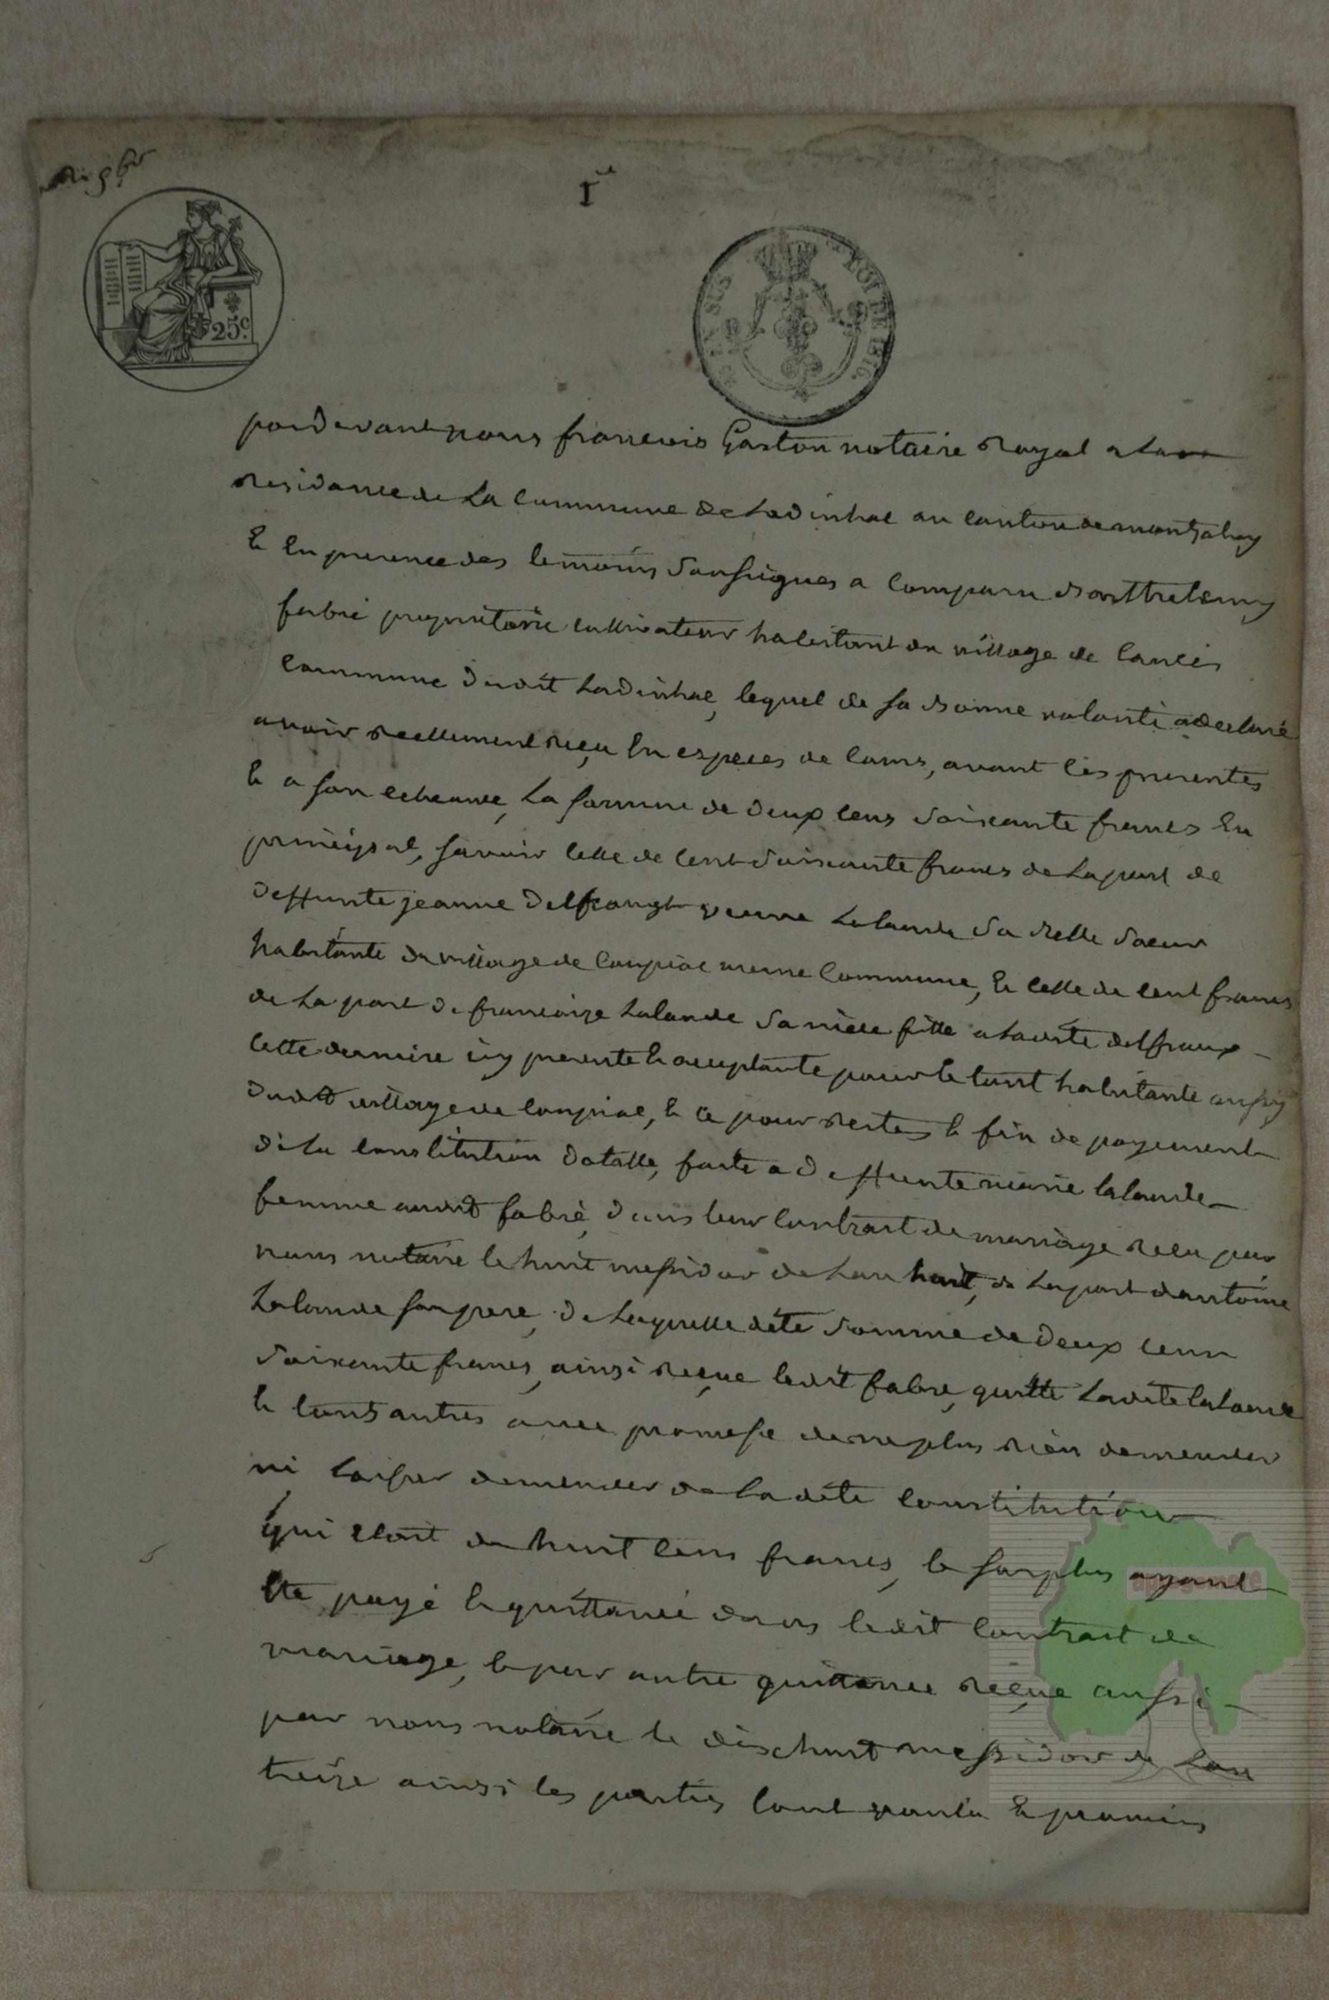 9bre
1re
25c
TIMB. SUP. ROYAL
par devant nous francois Gaston notaire Royal a La
residance de La Commune de Ladinhac au Canton de montsalvy
Et En presence des temoins Sousignes a Comparu Barthelemy
fabre proprietaire cultivateur habitant du village de Cances
Commune dudit Ladinhac, lequel de sa Bonne volonté a declaré
avoir reellement reçu En especes de Cours, avant les presentes
Et a son echeance, La somme de deux Cens Soixante francs En
principal, savoir Celle de Cent Soixante francs de La part de
deffunte jeanne delfrangt veuve Lalande Sa Belle Soeur
habitante du village de Caupiac meme Commune, Et Celle de Cent francs
de La part de francoize Lalande Sa niece fille a Ladite delfraux
Cette derniere icy presente Et acceptante pour Le tout habitante aussy
dudit village de Caupiac, Et Ce pour restes Et fin de payement
de La Constitution dotalle, faite a deffunte marie lalande
femme audit fabre, dans leur Contract de mariage recu par
nous notaire le huit messidor de Lan huit, de La part dantoine
Lalande son pere, de Laquelle dite Somme de deux Cens
Soixante francs, ainsi reçue ledit fabre, quitte Ladite lalande
Et tous autres avec promesse de ne plus rien demender
ni laisser demender de La dite Constitution
qui etoit de huit Cens francs, le surplus ayant
ete payé Et quittancé dans ledit Contract de
mariage, Et par autre quittance reçue aussi
par nous notaire le dix huit messidor de Lan
treize ainsi les parties lont voulu Et promis